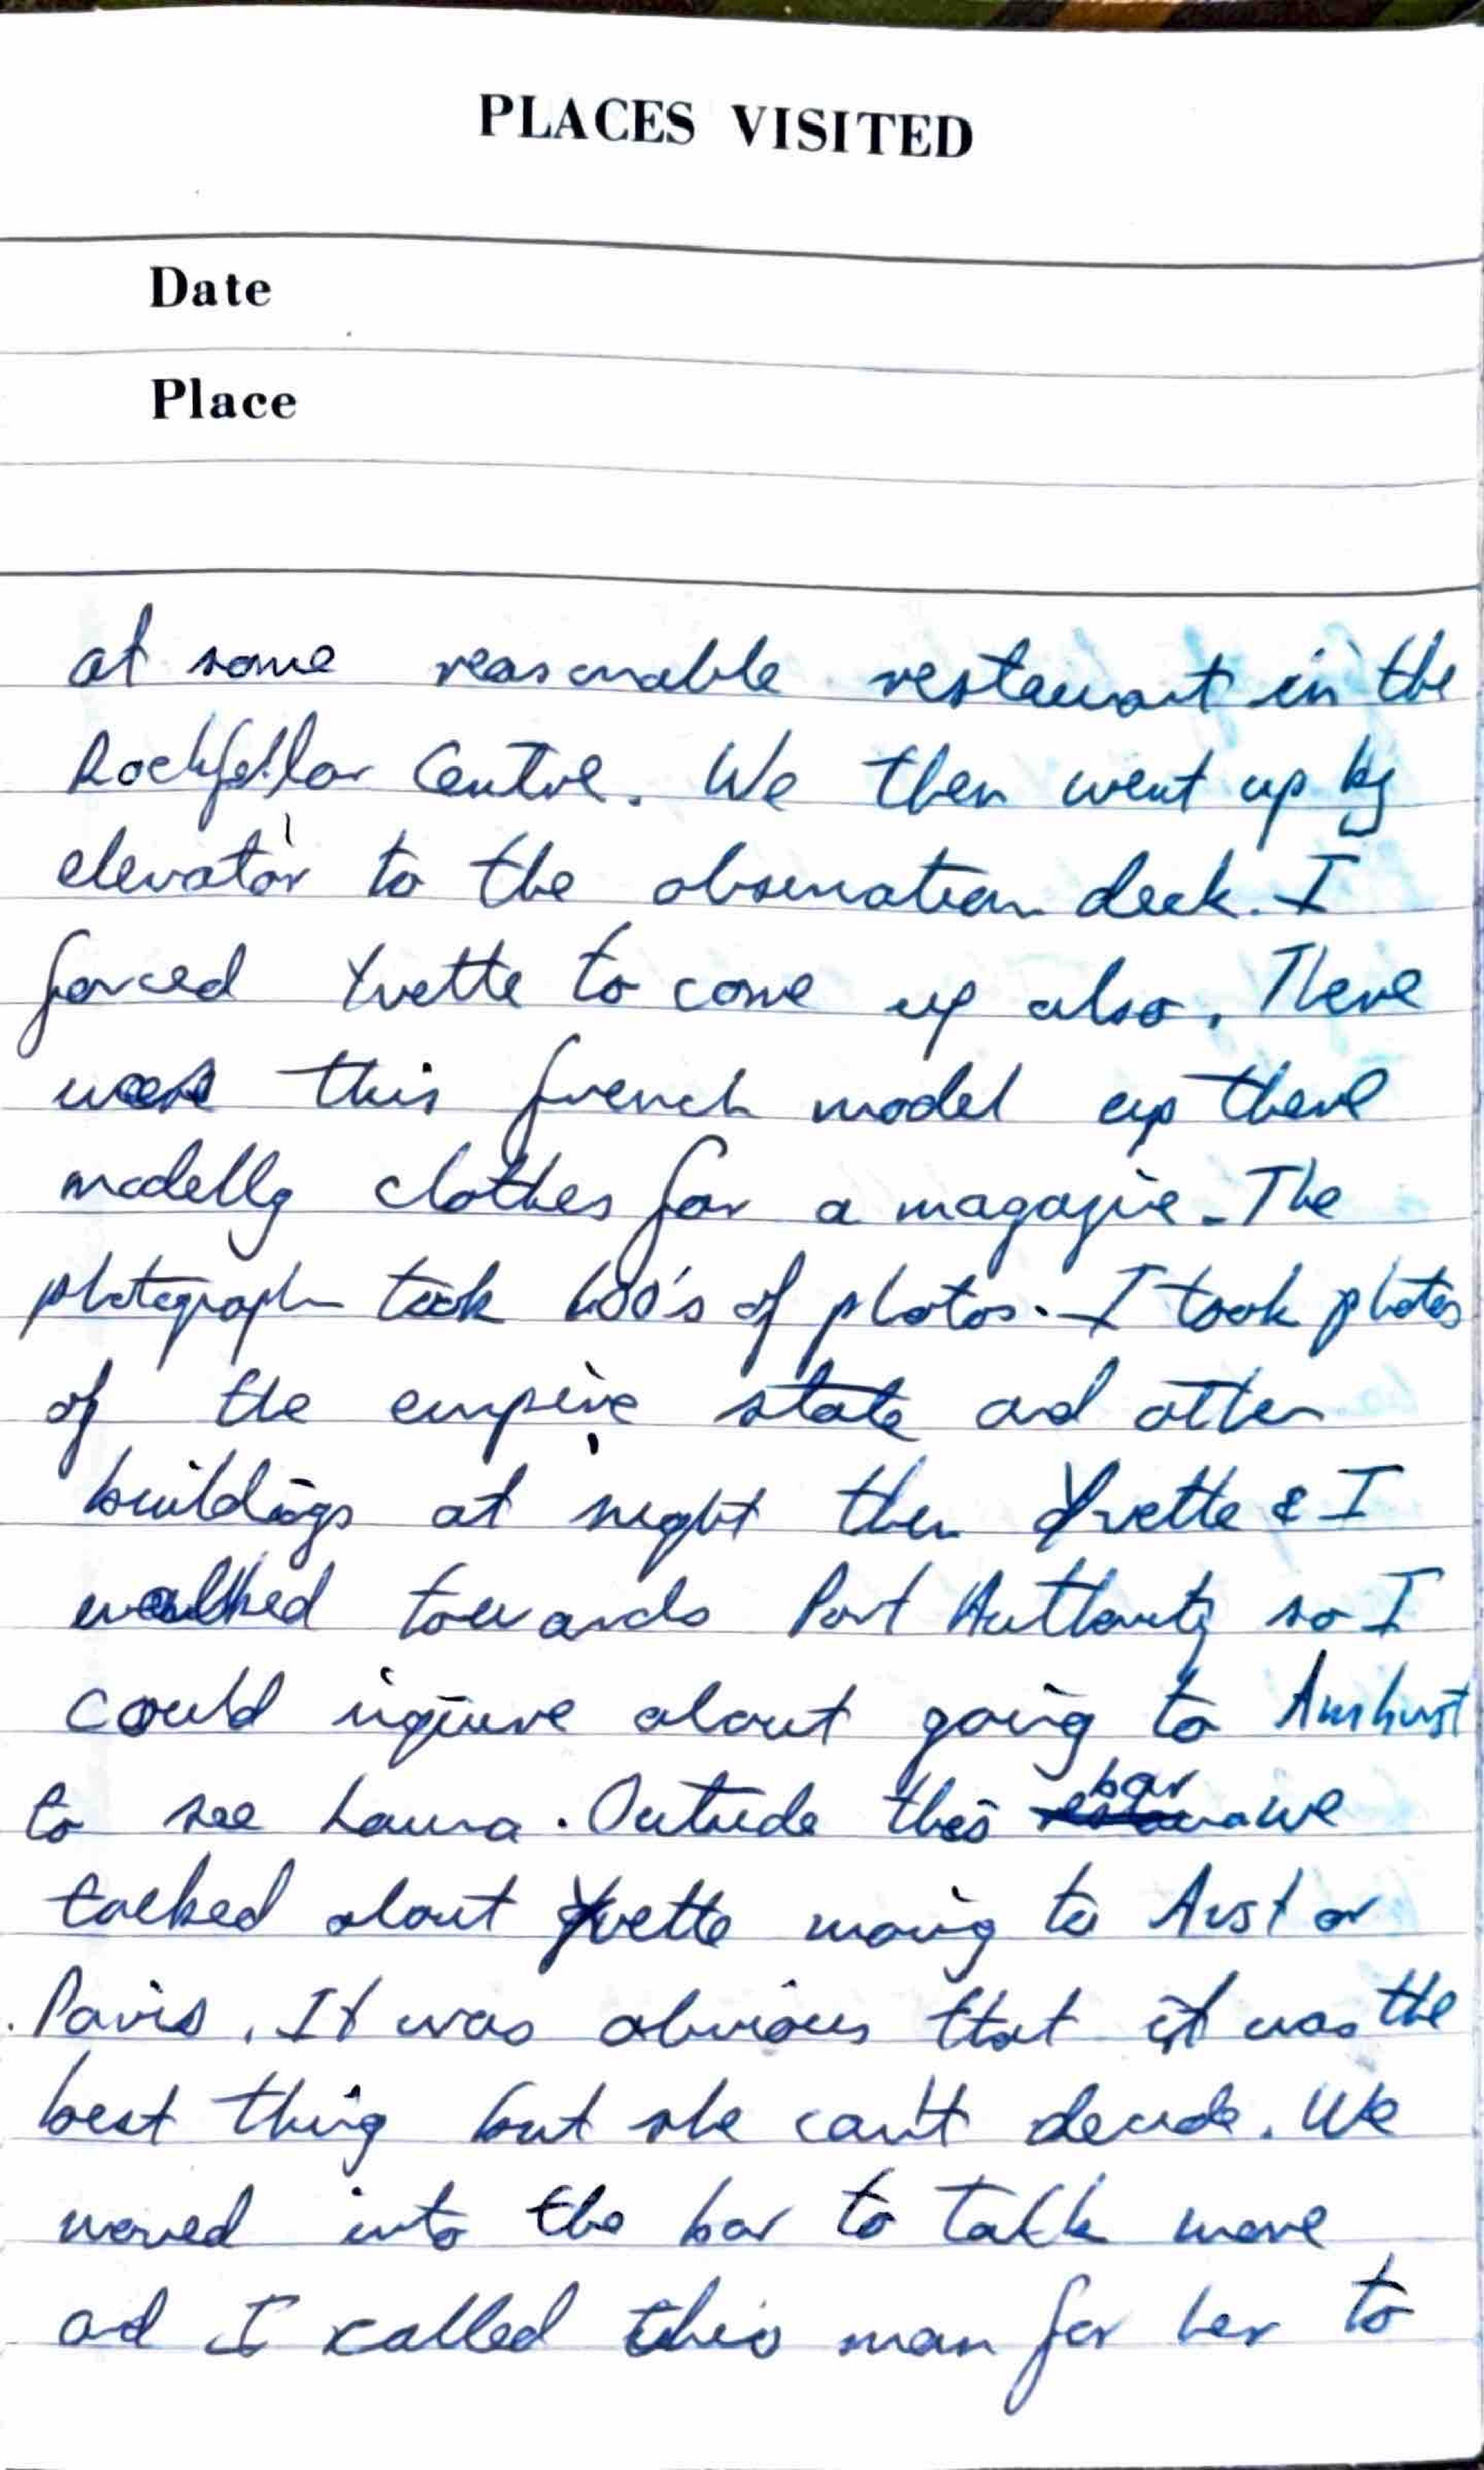 PLACES VISITED
Date
Place
at some reasonable restaurant in the
Rockfellar Centre. We then went up by
elevator to the observation deck. I
forced Yvette to come up also. There
was this french model up there
modellg clothes for a magazine. The
photograph took 600's of photos. I took photos
of the empire state and other
buildings at night then Yvette & I
walked towards Port Authority so I
could inquire about going to Amhurst
to see Laura. Outside this bar we
talked about Yvette moving to Aust or
Paris. It was obvious that it was the
best thing but she can't decide. We
moved into the bar to talk more
and I called this man for her to